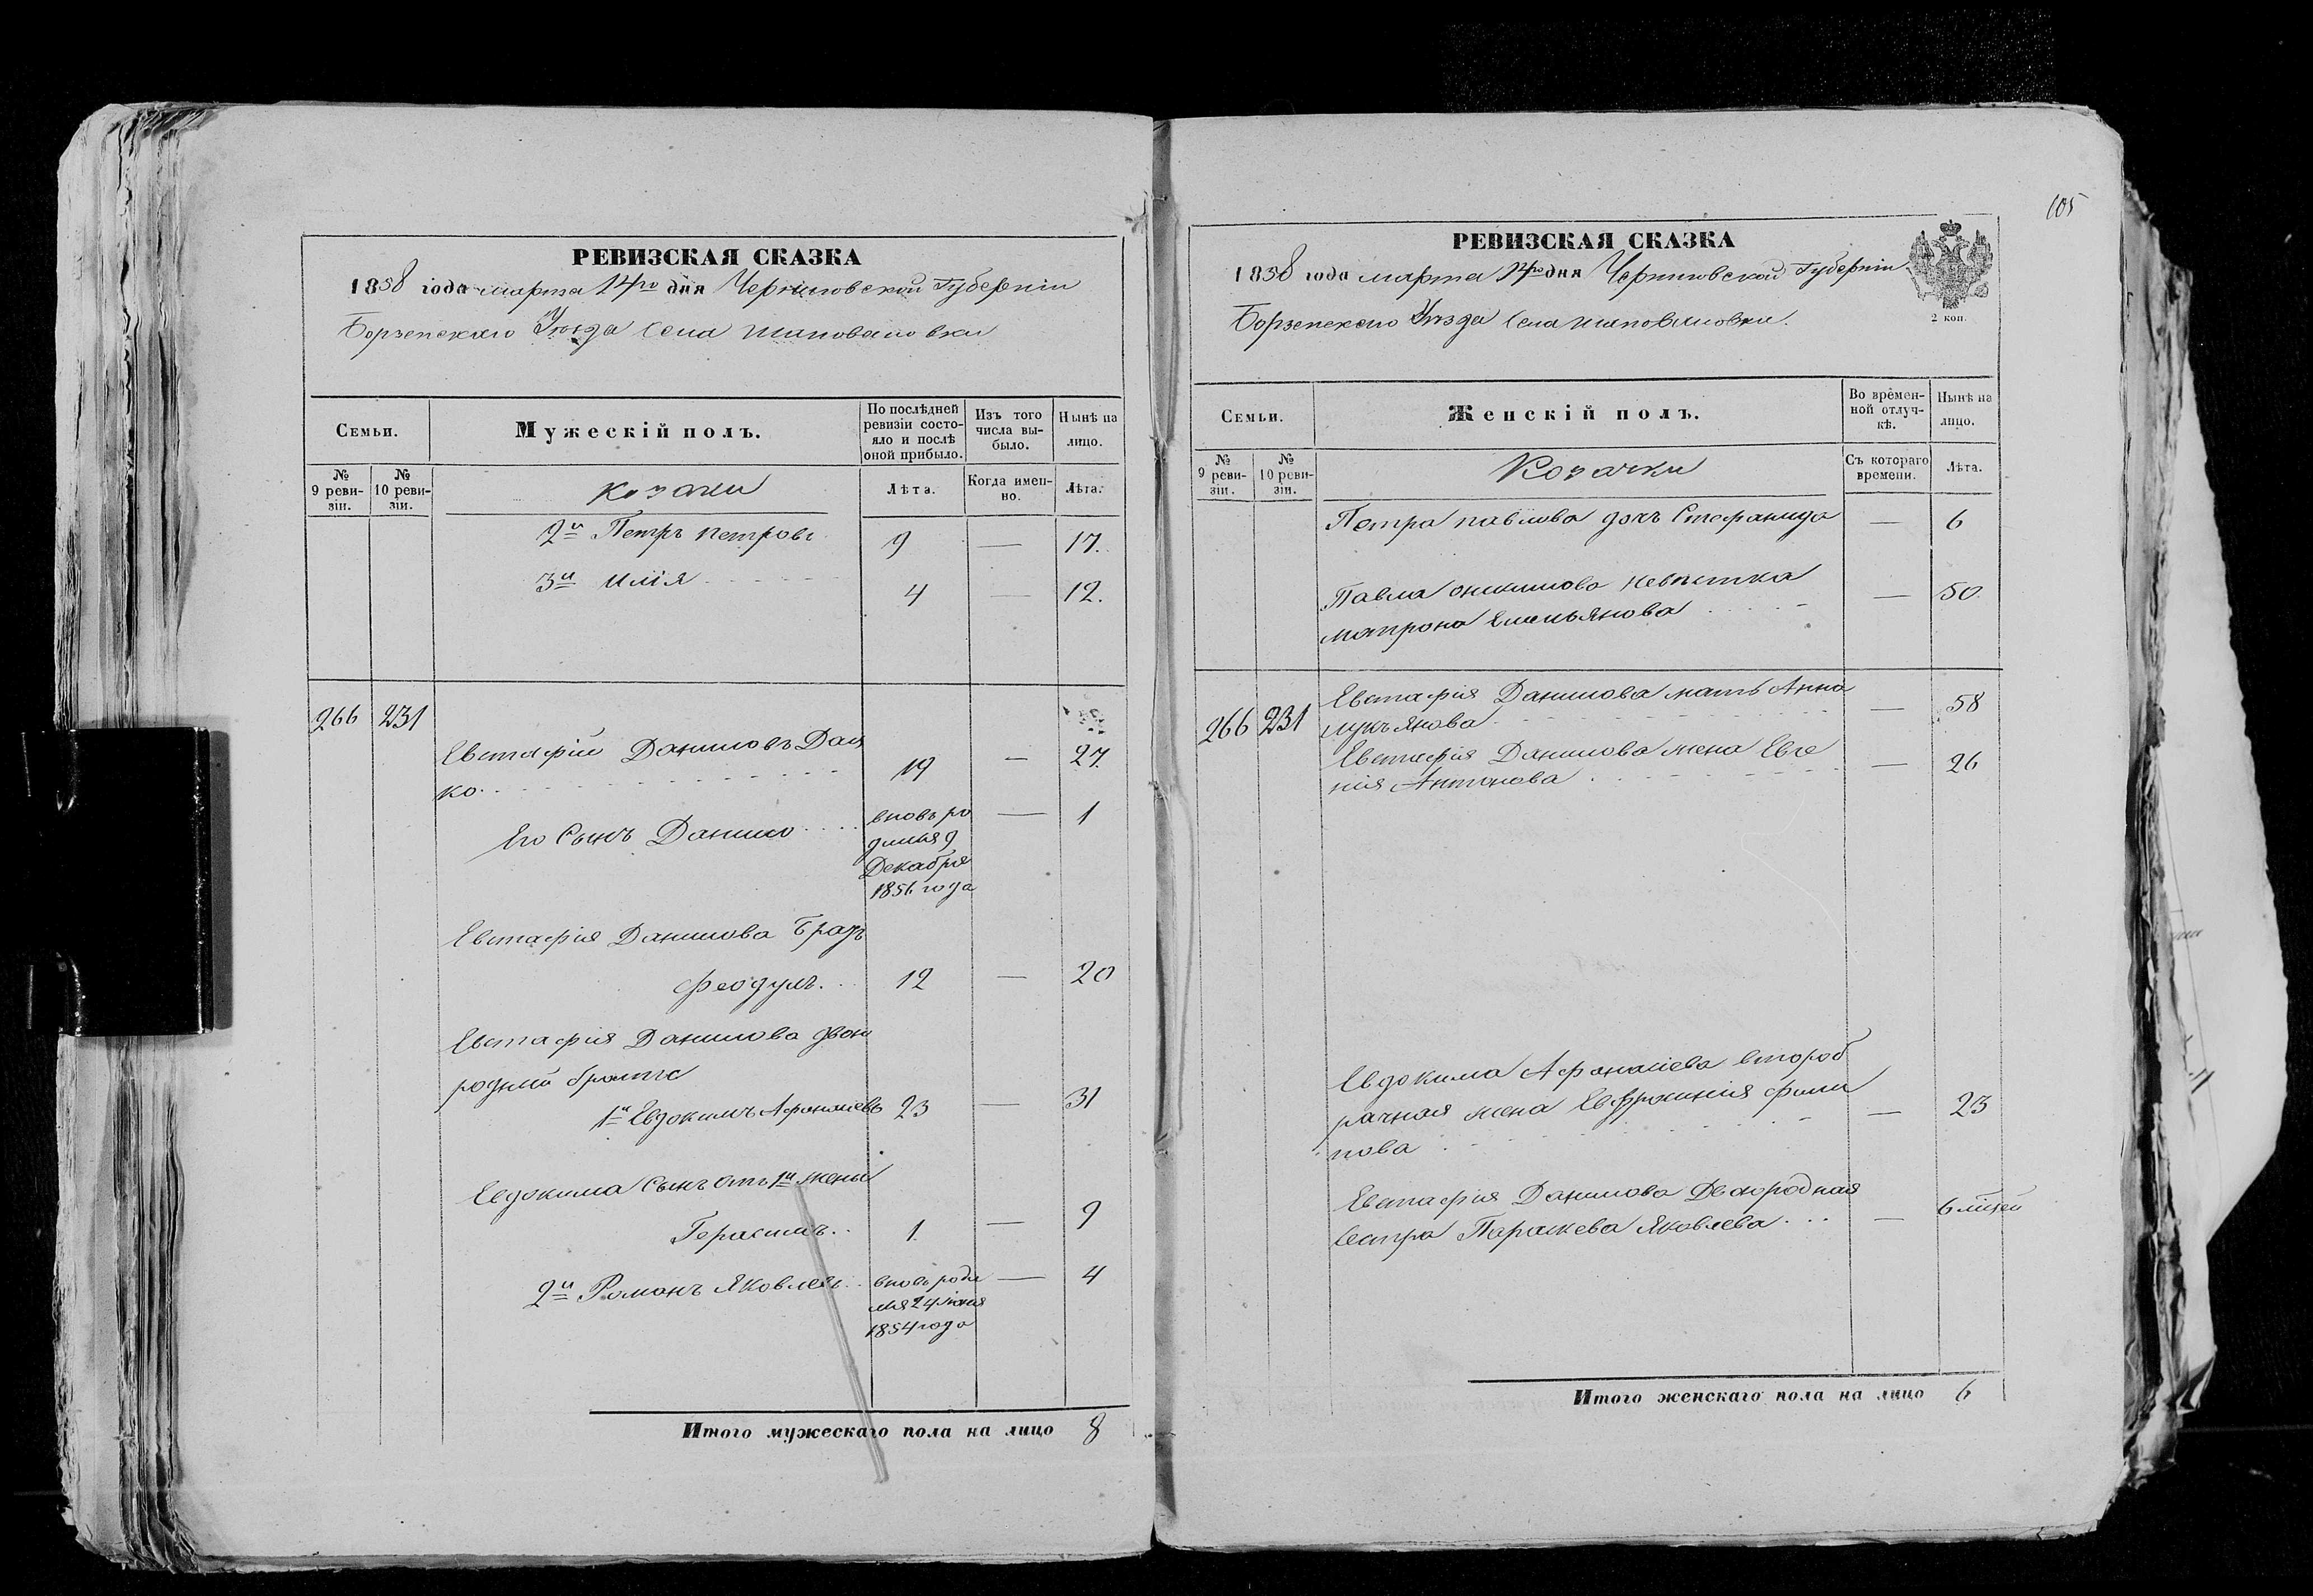 РЕВИЗСКАЯ СКАЗКА
1858 года марта 14го дня Черниговской Губерніи
Борзенскаго Уѣзда Села Шаповаловки
Семьи.
Мужескій полъ.
По послѣдней ревизіи состо-
яло и послѣ
оной прибыло.
Изъ того
числа вы-
было.
Нынѣ на
лицо.
№
9 реви-
зіи.
№
10 реви-
зіи.
Козаки
Лѣта.
Когда имен-
но.
Лѣта.
2й Петръ Петровъ 9 — 17.
3й Илія 4 — 12.
266 231
Евстафій Даниловъ Дац
ко 19 — 27.
Его Сынъ Данило вновь ро — 1
дился 9
Декабря
1856 года
Евстафія Данилова Братъ
Феодулъ 12 — 20
Евстафія Данилова двою
родный братъя
1й Евдокимъ Афанасіевъ 23 — 31
Евдокима Сынъ отъ 1й жены
Герасимъ 1 — 9
2й Романъ Яковлевъ вновь роди — 4
лся 24 
1854 года
Итого мужескаго пола на лицо 8
105
РЕВИЗСКАЯ СКАЗКА
1858 года марта 14го дня Черниговской Губерніи
Борзенскаго Уѣзда Села Шаповаловки.
2 коп.
Семьи.
Женскій полъ.
Во времен-
ной отлуч-
кѣ.
Нынѣ на
лицо.
№
9 реви-
зіи.
№
10 реви-
зіи.
Козачки
Съ котораго
времени.
Лѣта.
Петра Павлова дочь Стефанида — 6
Павла Оникіиова невѣстка — 50
Матрона Емельянова
266 231
Евстафія Данилова мать Анна — 58
Лукьянова
Евстафія Данилова жена Евге — 26
нія Антонова
Евдокима Афанасіева второб
рачная жена Евфросинія Фили — 23
пова
Евстафія Данилова Двоюродная
Сестра Параскева Яковлева — 6
Итого женскаго пола на лицо 6